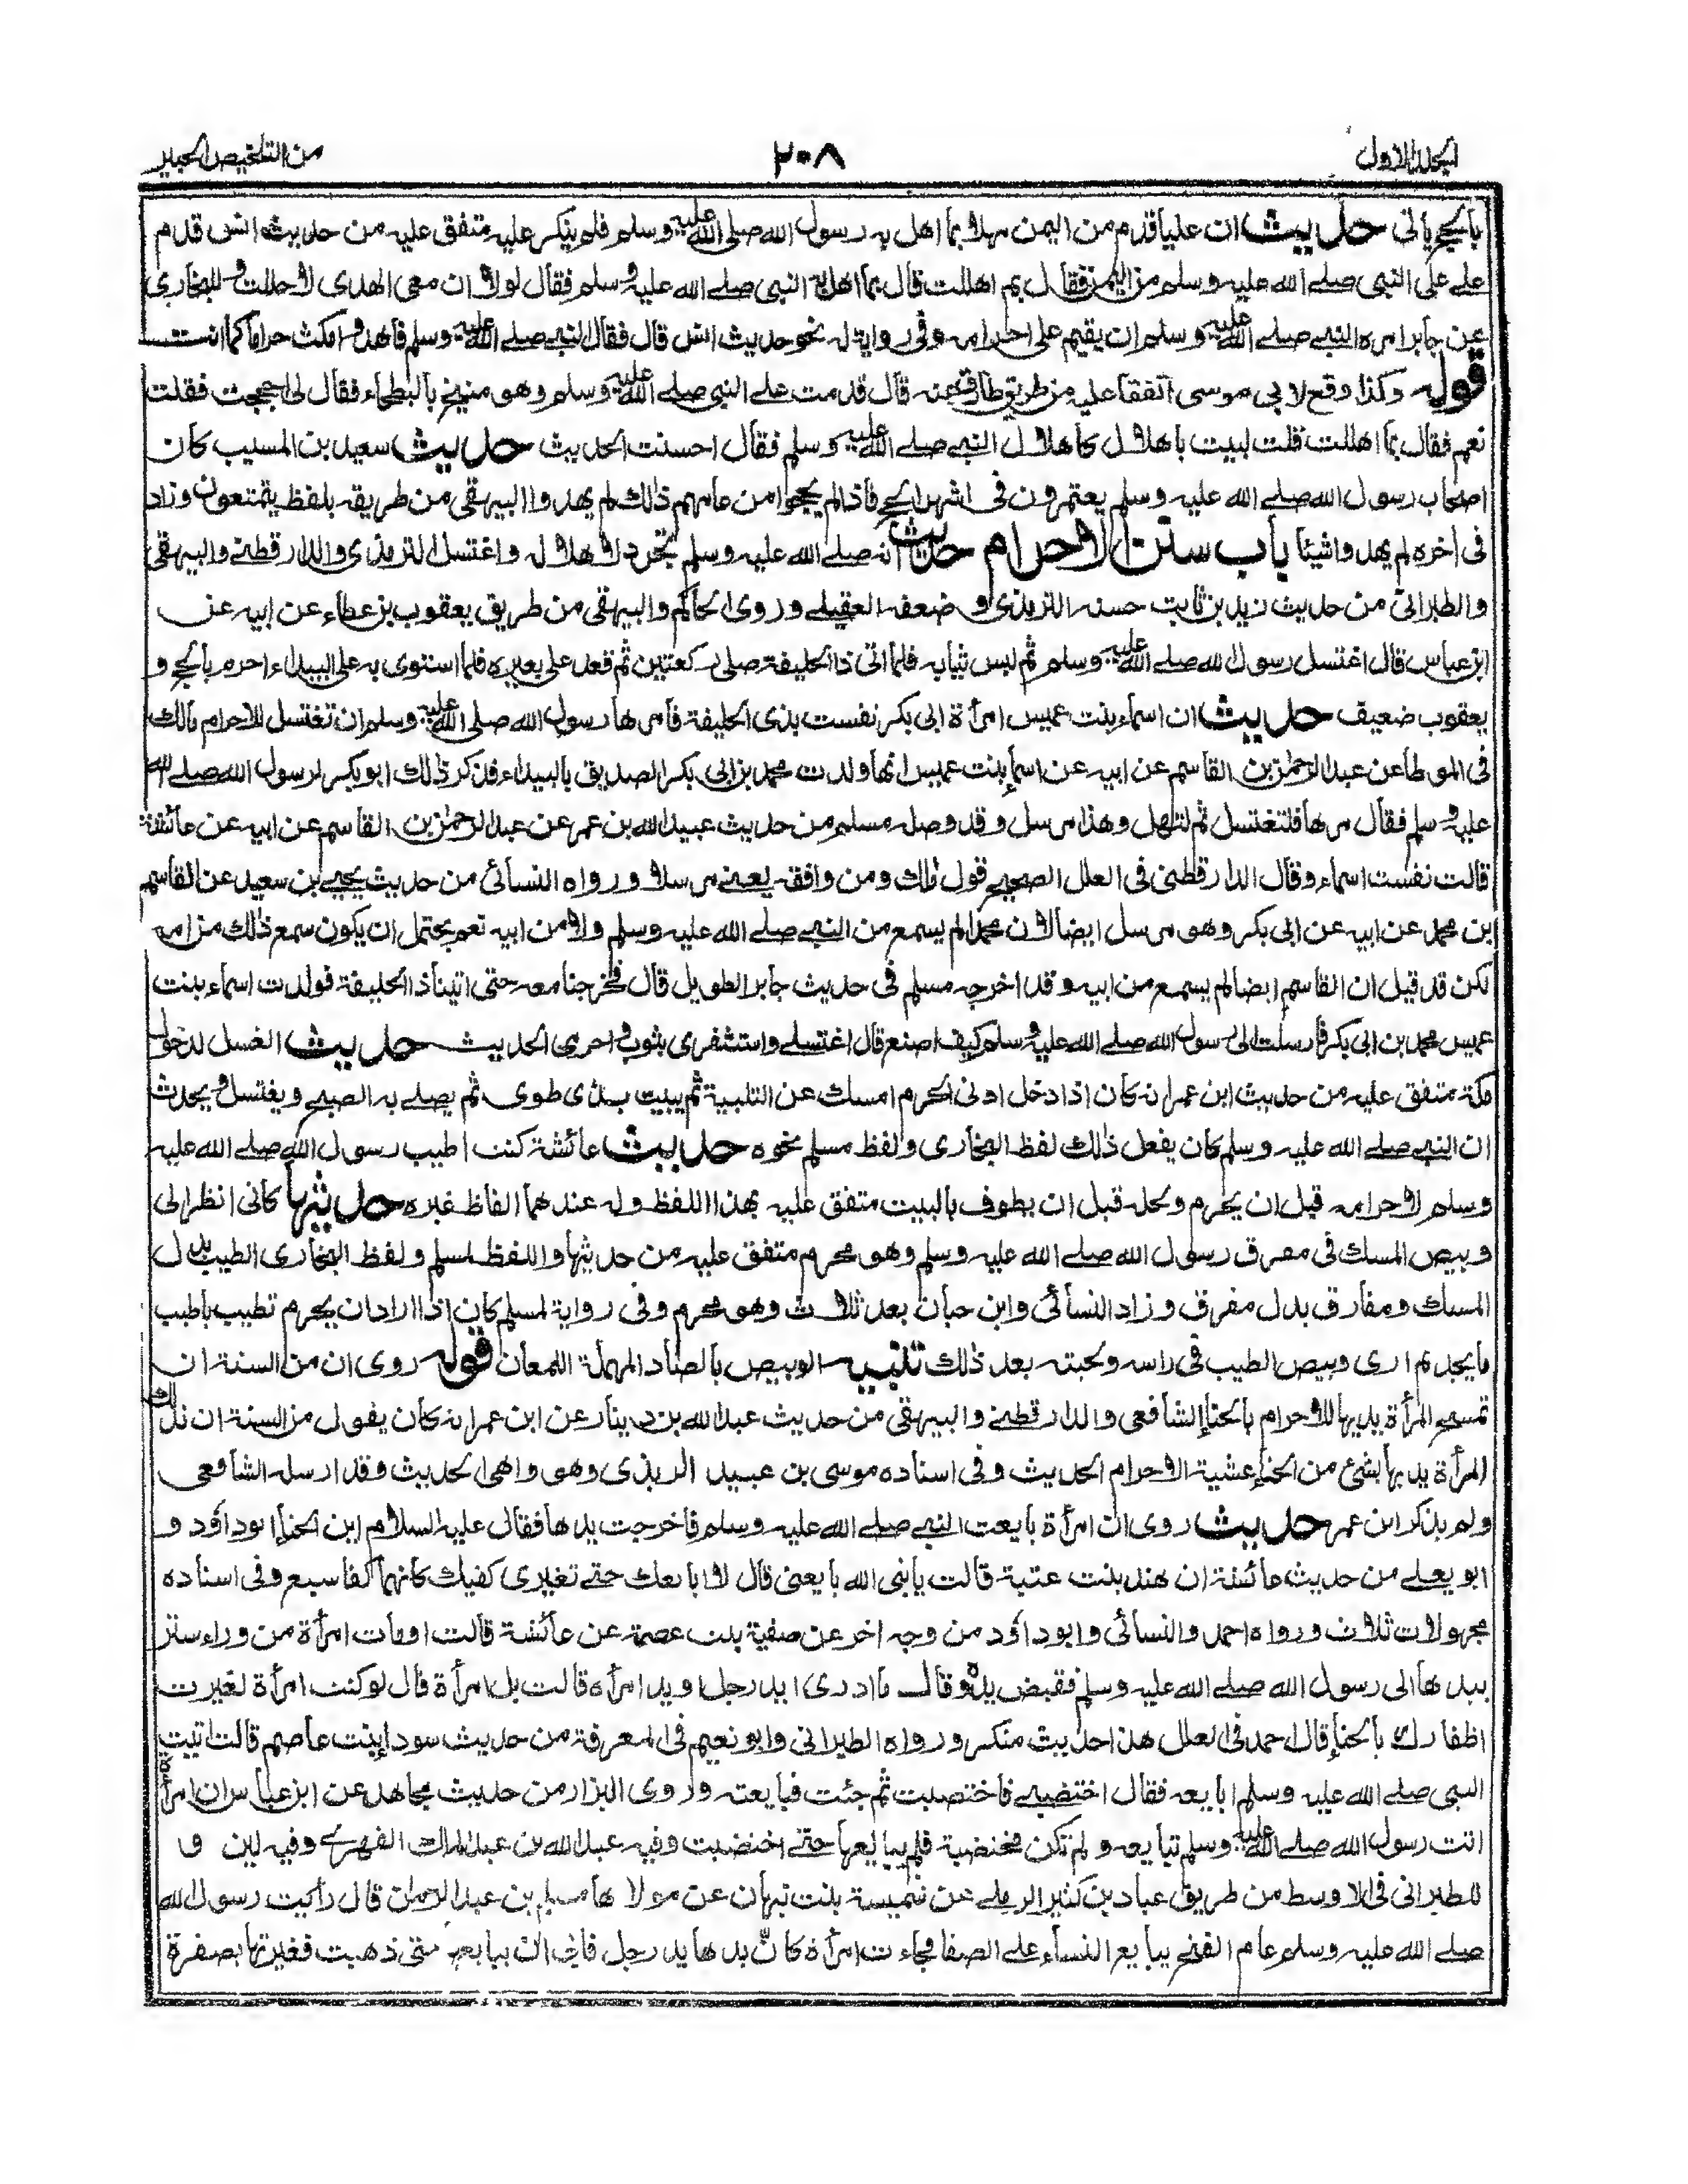 المجلد الاول
٢٠٨
من التلخيص الحبير
بالحج ياتى حديث ان عليا قدم من اليمن مهلا بما اهل به رسول الله صلى الله عليه وسلم فلم ينكر عليه متفق عليه من حديث انس قدم
على على النبى صلى الله عليه وسلم من اليمن فقال بم اهللت قال بما اهل به النبى صلى الله عليه وسلم فقال لولا ان معى الهدى لاحللت وللبخارى
عن جابر امره النبى صلى الله عليه وسلم ان يقيم على احرامه وفى رواية له نحو حديث انس قال فقال النبى صلى الله عليه وسلم فاهد وامكث حراما كما انت
قوله وكذا وقع لابى موسى اتفقا عليه من طريق طارق عنه قال قدمت على النبى صلى الله عليه وسلم وهو منيخ بالبطحاء فقال لى احججت فقلت
نعم فقال بما اهللت قلت لبيت باهلال كاهلال النبى صلى الله عليه وسلم فقال احسنت الحديث حديث سعيد بن المسيب كان
اصحاب رسول الله صلى الله عليه وسلم يعتمرون فى اشهر الحج فاذا لم يحجوا من عامهم ذلك لم يهدوا البيهقى من طريقه بلفظ يتمتعون وزاد
فى اخره لم يهدوا شيئا باب سنن الاحرام حديث انه صلى الله عليه وسلم تجرد لاهلاله واغتسل الترمذى والدارقطنى والبيهقى
والطبرانى من حديث زيد بن ثابت حسنه الترمذى وضعفه العقيلى وروى الحاكم والبيهقى من طريق يعقوب بن عطاء عن ابيه عن
ابن عباس قال اغتسل رسول الله صلى الله عليه وسلم ثم لبس ثيابه فلما اتى ذا الحليفة صلى ركعتين ثم قعد على بعيره فلما استوى به على البيداء احرم بالحج و
يعقوب ضعيف حديث ان اسماء بنت عميس امرأة ابى بكر نفست بذى الحليفة فامرها رسول الله صلى الله عليه وسلم ان تغتسل للاحرام مالك
فى الموطا عن عبد الرحمن بن القاسم عن ابيه عن اسماء بنت عميس انها ولدت محمد بن ابى بكر الصديق بالبيداء فذكر ذلك ابو بكر لرسول الله صلى الله
عليه وسلم فقال مرها فلتغتسل ثم لتهل وهذا مرسل وقد وصله مسلم من حديث عبيد الله بن عمر عن عبد الرحمن بن القاسم عن ابيه عن عائشة
قالت نفست اسماء وقال الدارقطنى فى العلل الصحيح قول مالك ومن وافقه يعنى مرسلا ورواه النسائى من حديث يحيى بن سعيد عن القاسم
ابن محمد عن ابيه عن ابى بكر وهو مرسل ايضا لان محمدا لم يسمع من النبى صلى الله عليه وسلم ولا من ابيه نعم يحتمل ان يكون سمع ذلك من امه
لكن قد قيل ان القاسم ايضا لم يسمع من ابيه وقد اخرجه مسلم فى حديث جابر الطويل قال فخرجنا معه حتى اتينا ذا الحليفة فولدت اسماء بنت
عميس محمد بن ابى بكر فارسلت الى رسول الله صلى الله عليه وسلم كيف اصنع قال اغتسلى واستثفرى بثوب واحرمى الحديث حديث الغسل لدخول
مكة متفق عليه من حديث ابن عمر انه كان اذا دخل ادنى الحرم امسك عن التلبية ثم يبيت بذى طوى ثم يصلى به الصبح ويغتسل ويحدث
ان النبى صلى الله عليه وسلم كان يفعل ذلك لفظ البخارى ولفظ مسلم نحوه حديث عائشة كنت اطيب رسول الله صلى الله عليه
وسلم لاحرامه قبل ان يحرم ولحله قبل ان يطوف بالبيت متفق عليه بهذا اللفظ وله عندهما الفاظ غيره حديثها كانى انظر الى
وبيص المسك فى مفرق رسول الله صلى الله عليه وسلم وهو محرم متفق عليه من حديثها واللفظ لمسلم ولفظ البخارى الطيب بدل
المسك ومفارق بدل مفرق وزاد النسائى وابن حبان بعد ثلاث وهو محرم وفى رواية لمسلم كان اذا اراد ان يحرم تطيب باطيب
ما يجد ثم ارى وبيص الطيب فى راسه ولحيته بعد ذلك تنبيه الوبيص بالصاد المهملة اللمعان قوله روى ان من السنة ان
تمسح المرأة يديها للاحرام بالحناء الشافعى والدارقطنى والبيهقى من حديث عبد الله بن دينار عن ابن عمر انه كان يقول من السنة ان تدلك
المرأة يديها بشئ من الحناء عشية الاحرام الحديث وفى اسناده موسى بن عبيد الربذى وهو واهى الحديث وقد ارسله الشافعى
ولم يذكر ابن عمر حديث روى ان امرأة بايعت النبى صلى الله عليه وسلم فاخرجت يدها فقال عليه السلام اين الحناء ابو داؤد و
ابو يعلى من حديث عائشة ان هند بنت عتبة قالت يا نبى الله بايعنى قال لا ابايعك حتى تغيرى كفيك كانهما كفا سبع وفى اسناده
مجهولات ثلاث ورواه احمد والنسائى وابو داؤد من وجه اخر عن صفية بنت عصمة عن عائشة قالت اومات امرأة من وراء ستر
بيدها الى رسول الله صلى الله عليه وسلم فقبض يده وقال ما ادرى ايد رجل او يد امرأه قالت بل امرأة قال لو كنت امرأة لغيرت
اظفارك بالحناء قال احمد فى العلل هذا حديث منكر ورواه الطبرانى وابو نعيم فى المعرفة من حديث سوداء بنت عاصم قالت اتيت
النبى صلى الله عليه وسلم ابايعه فقال اختضبى فاختضبت ثم جئت فبايعته وروى البزار من حديث مجاهد عن ابن عباس ان امرأة
اتت رسول الله صلى الله عليه وسلم تبايعه ولم تكن مختضبة فلم يبايعها حتى اختضبت وفيه عبد الله بن عبد الملك الفهرى وفيه لين و
للطبرانى فى الاوسط من طريق عباد بن كثير الرملى عن شميسة بنت نبهان عن مولاها مسلم بن عبد الرحمان قال رأيت رسول الله
صلى الله عليه وسلم عام الفتح يبايع النساء على الصفا فجاءت امرأة كان يدها يد رجل فابى ان يبايعها حتى ذهبت فغيرتها بصفرة